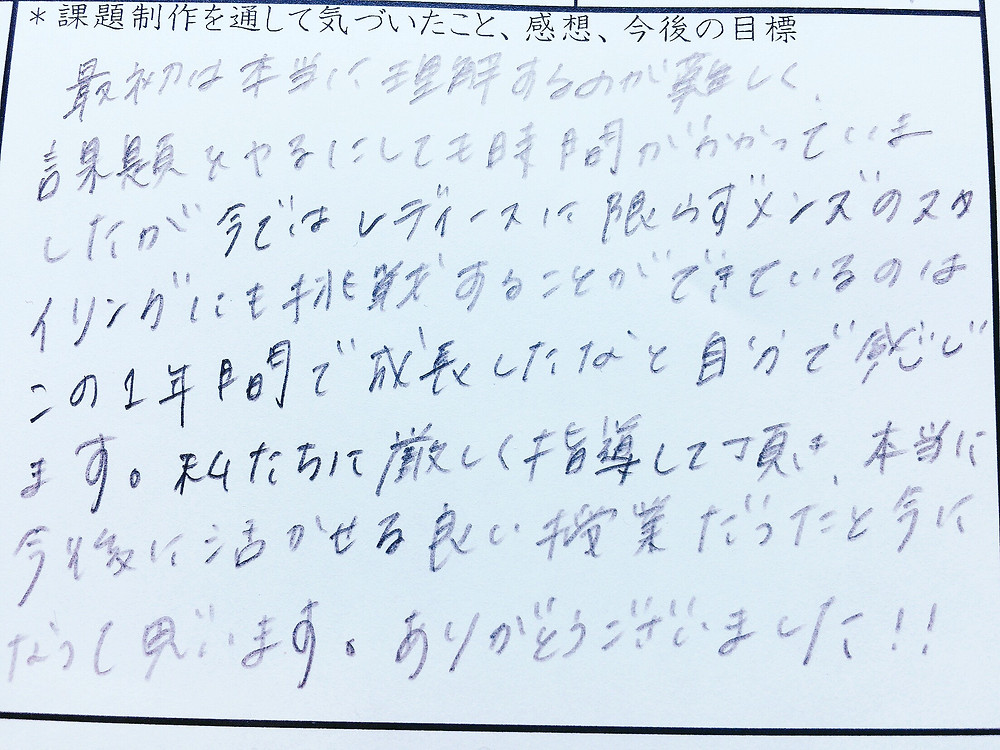 *課題制作を通して気づいたこと、感想、今後の目標
最初は本当に理解するのが難しく、
課題をやるにしても時間がかかっていま
したが今ではレディースに限らずメンズのスタ
イリングにも挑戦することができているのは
この1年間で成長したなと自分で感じ
ます。私たちに厳しく指導して頂き、本当に
今後に活かせる良い授業だったと今に
なって思います。ありがとうございました!!